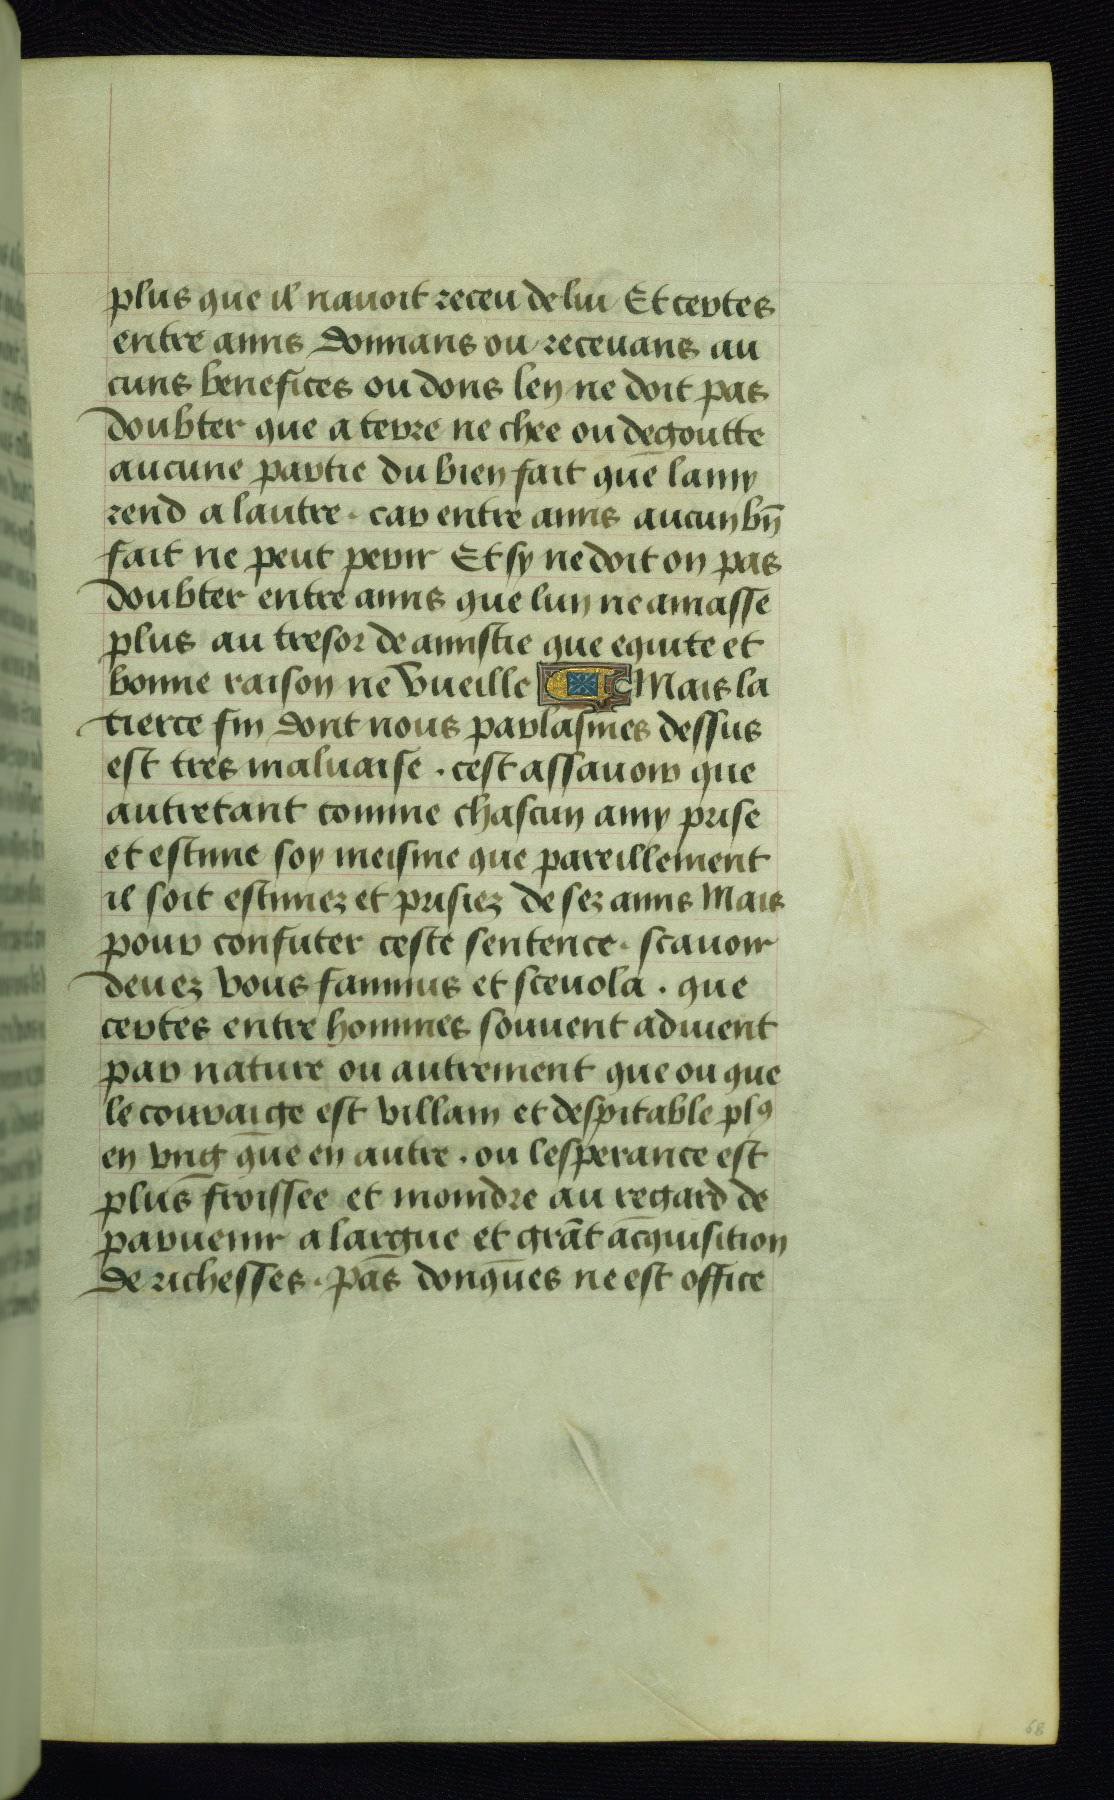 plus que il nauoit receu de lui Et certes
entre amis donnans ou receuans au
cuns benefices ou dons len ne doit pas
doubter que a terre ne chee ou degoutte
aucune partie du bien fait que lamy
rend a lautre · car entre amis aucun bn̄
fait ne peut perir Et sy ne doit on pas
doubter entre amis que lun ne amasse
plus au tresor de amistie que equite et
bonne raison ne vueille Mais la
tierce fin dont nous parlasmes dessus
est tres maluaise · cest assauoir que
autretant comme chascun amy prise
et estime soy meisme que pareillement
il soit estimez et prisiez de sez amis Mais
pour confuter ceste sentence · scauoir
deuez vous fannius et sceuola · que
certes entre hommes souuent aduient
par nature ou autrement que ou que
le couraige est villain et despitable plꝰ
en vng que en autre · ou lesperance est
plus froissee et moindre au regard de
paruenir a largue et grāt acquisition
de richesses · Pas donques ne est office
68